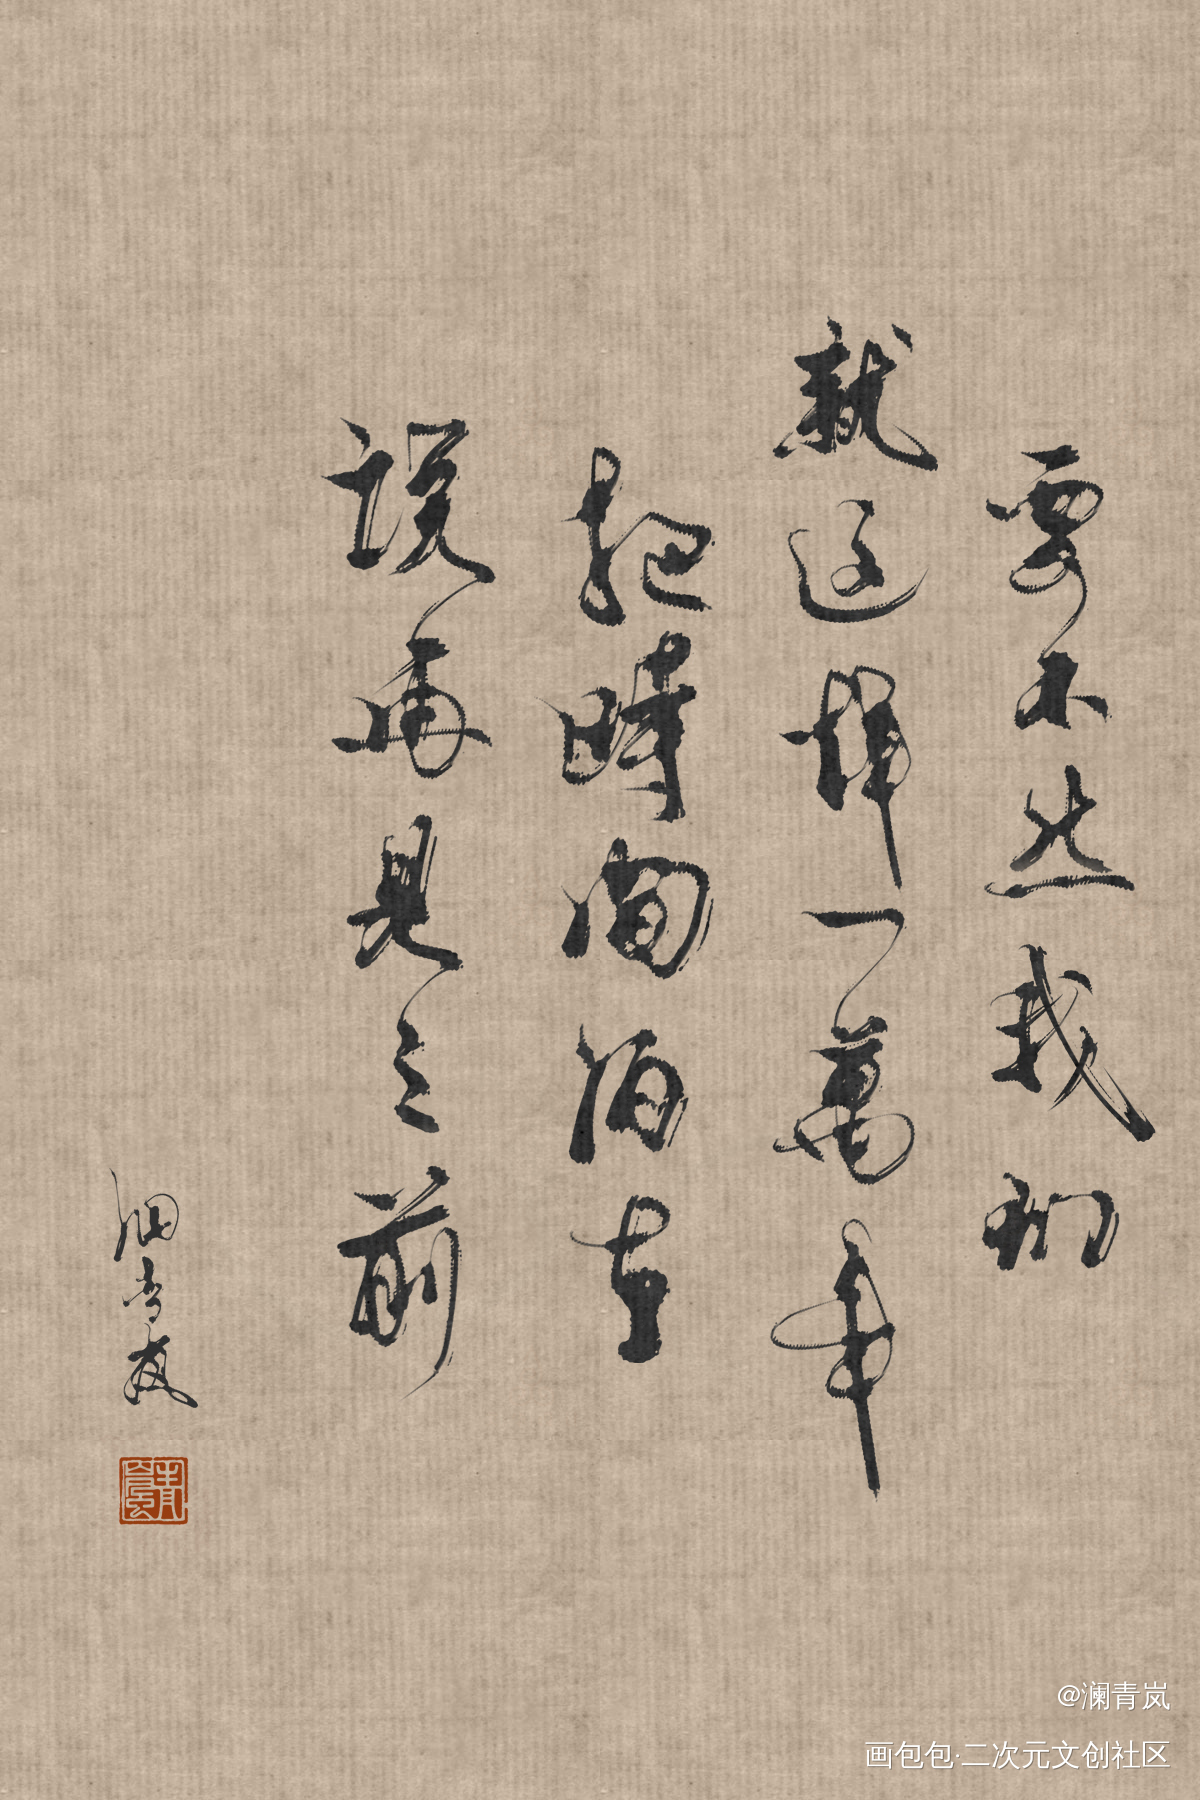 要不然我們
就這樣一萬年
把時間在
說再見之前
@澜青岚
画包包·二次元文创社区